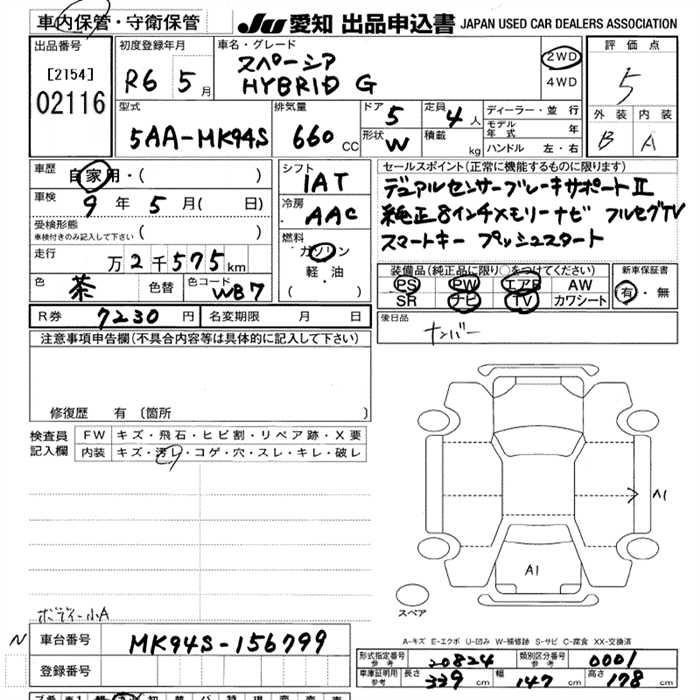 車内保管・守衛保管 JU 愛知 出品申込書 JAPAN USED CAR DEALERS ASSOCIATION
出品番号 初度登録年月 車名・グレード 評価点
[2154] R6 5月 スペーシア 2WD 5
02116 HYBRID G 4WD
型式 排気量 ドア 5 定員 4人 ディーラー・並行 外装 内装
5AA-MK94S 660CC 形状 W 積載 kg モデル年式 年 B A
ハンドル 左・右
車歴 自家用・( ) シフト セールスポイント(正常に機能するものに限ります)
車検 9年 5月( 日) IAT デュアルセンサーブレーキサポートⅡ
受検形態 冷房 純正8インチメモリーナビ フルセグTV
車検付きのみ記入して下さい ( ) AAC スマートキー プッシュスタート
走行 万2千575km 燃料 ガソリン 装備品(純正品に限り○をつけてください) 新車保証書
色 茶 色替 色コード WB7 軽・油 PS PW エアB AW 有・無
( ) SR ナビ TV カワシート
R券 7230円 名変期限 月 日 後日品 ナンバー
注意事項申告欄(不具合内容等は具体的に記入して下さい)
修復歴 有 〔箇所 〕
検査員記入欄 FW キズ・飛石・ヒビ割・リペア跡・X要
内装 キズ・汚レ・コゲ・穴・スレ・キレ・破レ
A1
A1
スペア
ボディー小A
A-キズ E-エクボ U-凹み W-補修跡 S-サビ C-腐食 XX-交換済
N 車台番号 MK94S-156799
登録番号
形式指定番号 参考 20824 類別区分番号 参考 0001
車庫証明用 参考 長さ 339cm 幅 147cm 高さ 178cm